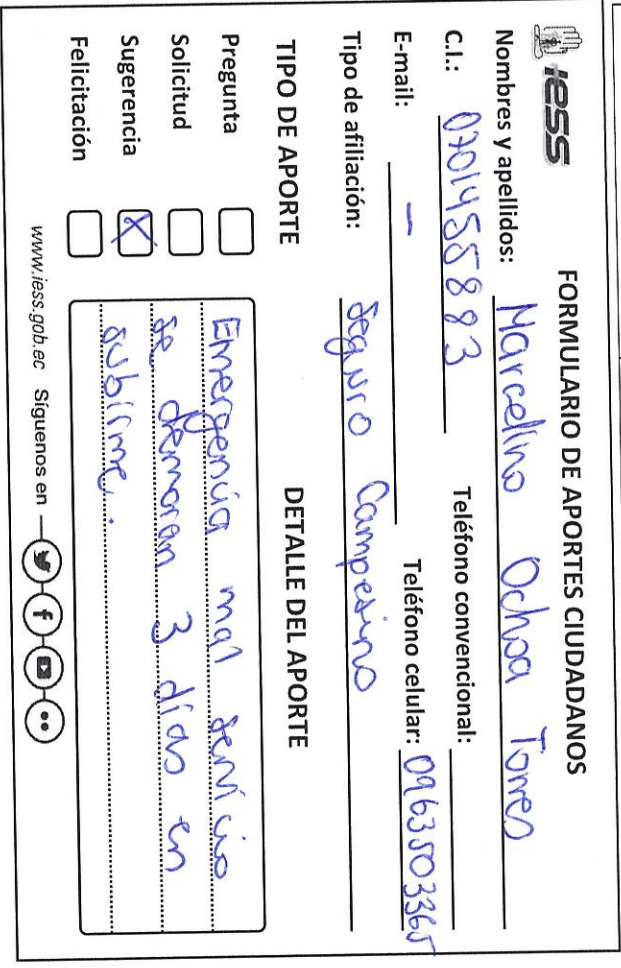 iess
FORMULARIO DE APORTES CIUDADANOS
Nombres y apellidos: Marcelino Ochoa Torres
C.I.: 0701455883 Teléfono convencional:
E-mail: — Teléfono celular: 0963503365
Tipo de afiliación: Seguro Campesino
TIPO DE APORTE
DETALLE DEL APORTE
Pregunta
Solicitud
Sugerencia X
Felicitación
Emergencia mal servicio
se demoran 3 días en
subirme.
www.iess.gob.ec Síguenos en